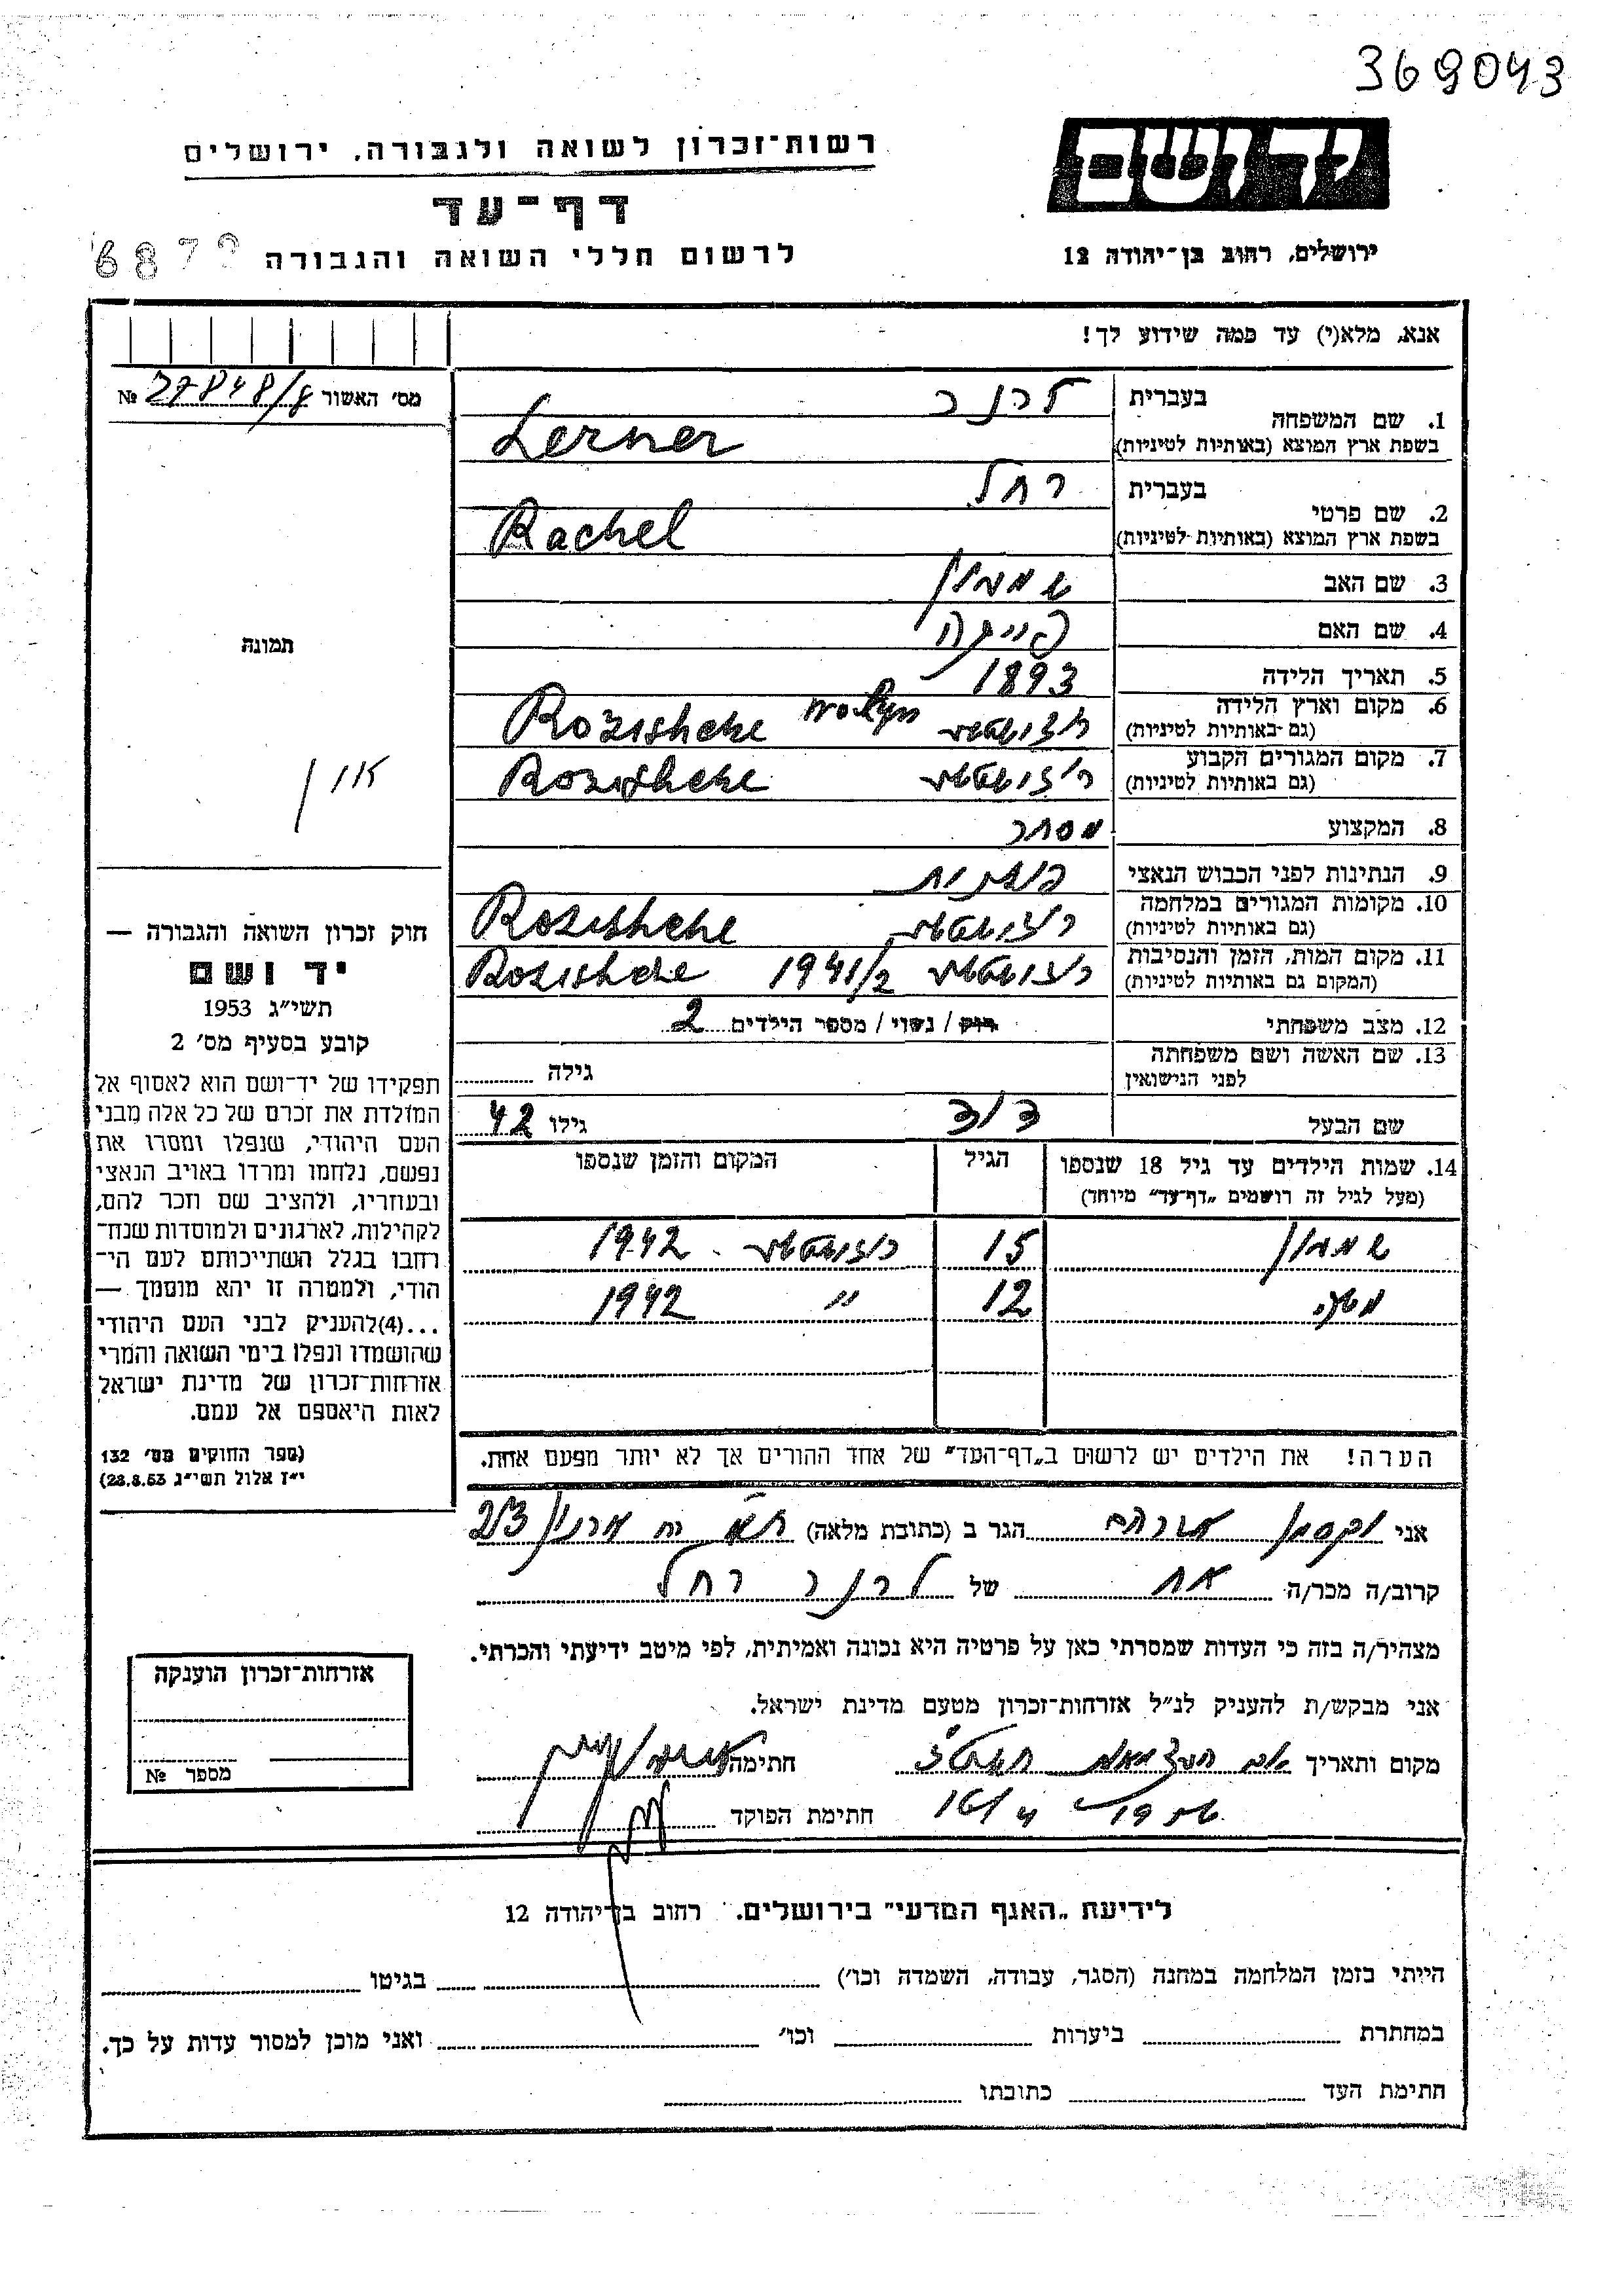 369043
יד ושם
רשות־זכרון לשואה ולגבורה, ירושלים
דף־עד
לרשום חללי השואה והגבורה
ירושלים, רחוב בן־יהודה 12
אנא, מלא(י) עד כמה שידוע לך!
מס׳ האשור № 27848/8
1. שם המשפחה בעברית לרנר
בשפת ארץ המוצא (באותיות לטיניות) Lerner
2. שם פרטי בעברית רחל
בשפת ארץ המוצא (באותיות לטיניות) Rachel
3. שם האב שמעון
4. שם האם פייגה
5. תאריך הלידה 1893
6. מקום וארץ הלידה (גם באותיות לטיניות) Rozishche Wolyn
7. מקום המגורים הקבוע (גם באותיות לטיניות) Rozishche
8. המקצוע מסחר
9. הנתינות לפני הכבוש הנאצי פולנית
10. מקומות המגורים במלחמה (גם באותיות לטיניות) Rozishche
11. מקום המות, הזמן והנסיבות (המקום גם באותיות לטיניות) 1941/2 Rozishche
12. מצב משפחתי רוק / נשוי / מספר הילדים 2
13. שם האשה ושם משפחתה לפני הנישואין גילה
שם הבעל דוד גילו 42
14. שמות הילדים עד גיל 18 שנספו (מעל לגיל זה רושמים „דף־עד״ מיוחד) הגיל המקום והזמן שנספו
שמעון 15 1942
12 ״ 1942
הערה! את הילדים יש לרשום ב„דף־העד״ של אחד ההורים אך לא יותר מפעם אחת.
תמונה
אין
חוק זכרון השואה והגבורה —
יד ושם
תשי״ג 1953
קובע בסעיף מס׳ 2
תפקידו של יד־ושם הוא לאסוף אל
המולדת את זכרם של כל אלה מבני
העם היהודי, שנפלו ומסרו את
נפשם, נלחמו ומרדו באויב הנאצי
ובעוזריו, ולהציב שם וזכר להם,
לקהילות, לארגונים ולמוסדות שנח־
רחבו בגלל השתייכותם לעם הי־
הודי, ולמטרה זו יהא מוסמך —
...(4)להעניק לבני העם היהודי
שהושמדו ונפלו בימי השואה והמרי
אזרחות־זכרון של מדינת ישראל
לאות היאספם אל עמם.
(ספר החוקים מס׳ 132
י״ז אלול תשי״ג 28.8.53)
אני וקסמן אברהם הגר ב (כתובת מלאה)
קרוב/ה מכר/ה אח של לרנר רחל
מצהיר/ה בזה כי העדות שמסרתי כאן על פרטיה היא נכונה ואמיתית, לפי מיטב ידיעתי והכרתי.
אני מבקש/ת להעניק לנ״ל אזרחות־זכרון מטעם מדינת ישראל.
מקום ותאריך חתימה
חתימת הפוקד
אזרחות־זכרון הוענקה
מספר №
לידיעת „האגף המדעי״ בירושלים. רחוב בן־יהודה 12
הייתי בזמן המלחמה במחנה (הסגר, עבודה, השמדה וכו׳) בגיטו
במחתרת ביערות וכו׳ ואני מוכן למסור עדות על כך.
חתימת העד כתובתו